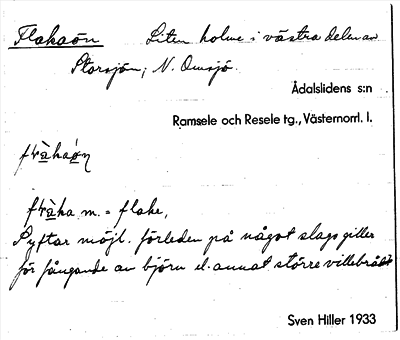 Flakaön Liten holme i västra delen av
Storsjön, N. Omsjö.
Ådalslidens s:n
Ramsele och Resele tg., Västernorrl. l.
flàkaǿn
flàka m. = flake,
Syftar möjl. förleden på något slags giller
för fångande av björn el. annat större villebråd?
Sven Hiller 1933